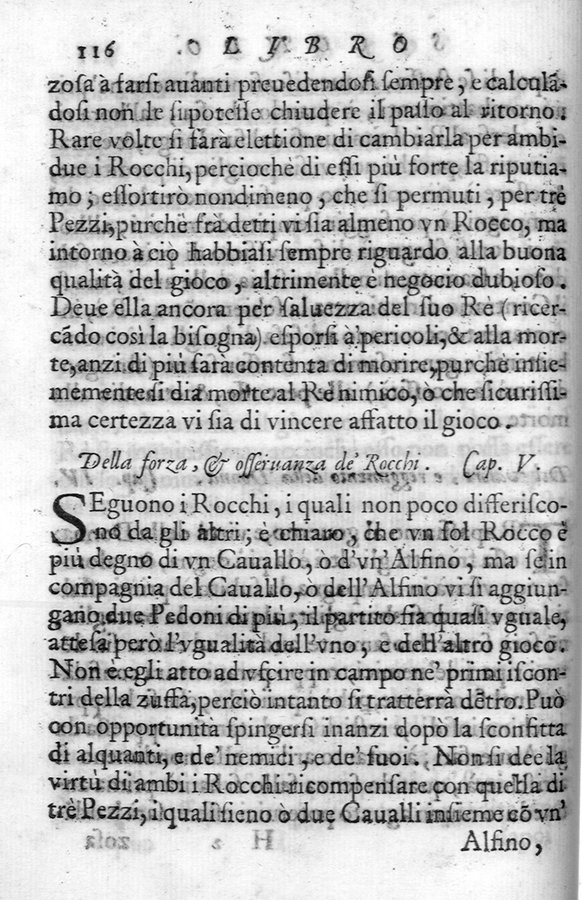 116 LYBRO
zosa à farsi auanti preuedendosi sempre, e calculã-
dosi non le si potesse chiudere il passo al ritorno.
Rare volte si farà elettione di cambiarla per ambi-
due i Rocchi, percioche di essi più forte la riputia-
mo; essortirò nondimeno, che si permuti, per trè
Pezzi, purche frà detti vi sia almeno vn Rocco, ma
intorno à ciò habbiasi sempre riguardo alla buona
qualità del gioco, altrimente è negocio dubioso.
Deue ella ancora per saluezza del suo Rè (ricer-
cãdo così la bisogna) esporsi à pericoli, & alla mor-
te, anzi di più sarà contenta di morire, purche insie-
memente si dia morte al Rè nimico, ò che sicurissi-
ma certezza vi sia di vincere affatto il gioco.
Della forza, & osseruanza de' Rocchi. Cap. V.
SEguono i Rocchi, i quali non poco differisco-
no da gli altri; è chiaro, che vn sol Rocco è
più degno di vn Cauallo, ò d'vn' Alfino, ma se in
compagnia del Cauallo, ò dell'Alfino vi si aggiun-
gano due Pedoni di più, il partito fia quasi vguale,
attesa però l'vgualità dell'vno, e dell'altro gioco.
Non è egli atto ad vscire in campo ne' primi iscon-
tri della zuffa, perciò intanto si tratterrà dẽtro. Può
con opportunità spingersi inanzi dopò la sconfitta
di alquanti, e de' nemici, e de' suoi. Non si dee la
virtù di ambi i Rocchi ricompensare con quella di
trè Pezzi, i quali sieno ò due Caualli insieme cõ vn'
Alfino,